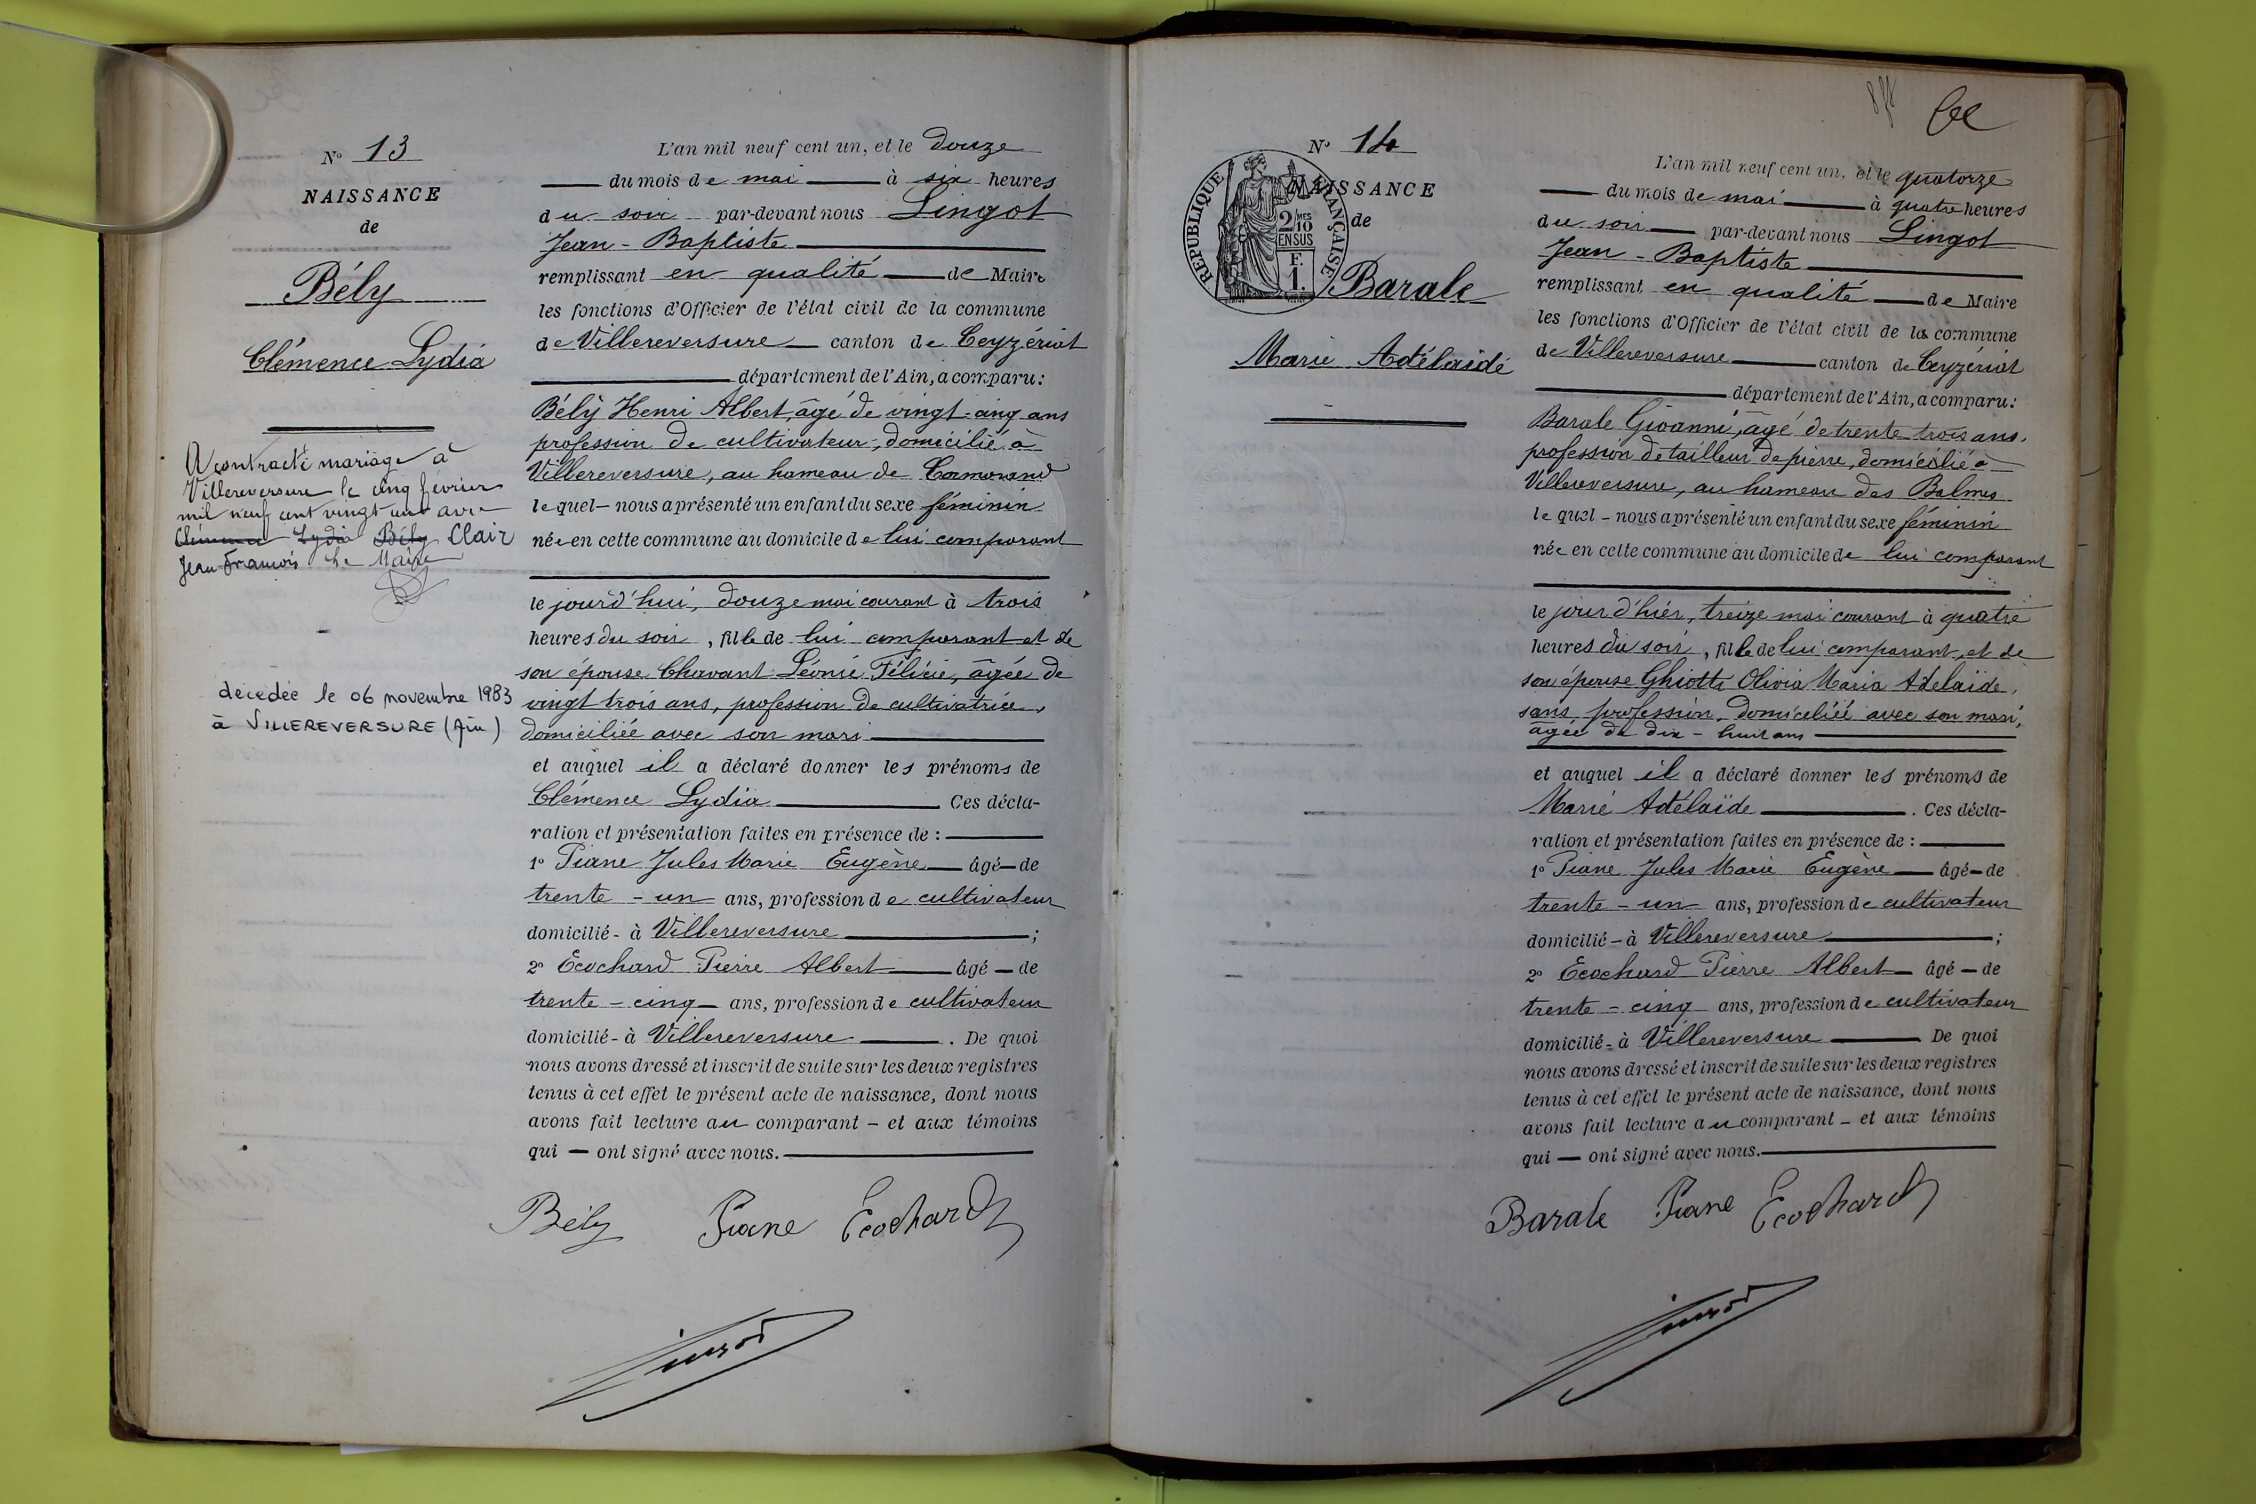 N° 13
NAISSANCE
de
Bély
Clémence Lydia
A contracté mariage à
Villereversure le cinq février
mil neuf cent vingt un avec
Clémence Lydia Bély Clair
Jean François Le Maire
décédée le 06 novembre 1983
à VILLEREVERSURE (Ain)
L'an mil neuf cent un, et le douze
du mois de mai à six heures
du soir par-devant nous Lingot
Jean-Baptiste
remplissant en qualité de Maire
les fonctions d'Officier de l'état civil de la commune
de Villereversure canton de Ceyzériat
département de l'Ain, a comparu:
Bély Henri Albert, âgé de vingt-cinq ans
profession de cultivateur, domicilié à
Villereversure, au hameau de Camorand
lequel - nous a présenté un enfant du sexe féminin
née en cette commune au domicile de lui comparant
le jour d'hui, douze mai courant à trois
heures du soir, fille de lui comparant et de
son épouse Chavant Léonie Félicie, âgée de
vingt trois ans, profession de cultivatrice,
domiciliée avec son mari
et auquel il a déclaré donner les prénoms de
Clémence Lydia Ces décla-
ration et présentation faites en présence de :
1° Piane Jules Marie Eugène âgé - de
trente - un ans, profession de cultivateur
domicilié - à Villereversure ;
2° Ecochard Pierre Albert âgé - de
trente - cinq ans, profession de cultivateur
domicilié - à Villereversure . De quoi
nous avons dressé et inscrit de suite sur les deux registres
tenus à cet effet le présent acte de naissance, dont nous
avons fait lecture au comparant - et aux témoins
qui - ont signé avec nous.
Bély Piane Ecochard
Lingot
N° 14
NAISSANCE
de
RÉPUBLIQUE FRANÇAISE
2/10 MES
EN SUS
F.
1.
Barale
Marie Adélaïde
L'an mil neuf cent un, et le quatorze
du mois de mai à quatre heures
du soir par-devant nous Lingot
Jean - Baptiste
remplissant en qualité de Maire
les fonctions d'Officier de l'état civil de la commune
de Villereversure canton de Ceyzériat
département de l'Ain, a comparu:
Barale Giovanni, âgé de trente trois ans,
profession de tailleur de pierre, domicilié à
Villereversure, au hameau des Balmes
lequel - nous a présenté un enfant du sexe féminin
née en cette commune au domicile de lui comparant
le jour d'hier, treize mai courant à quatre
heures du soir, fille de lui comparant, et de
son épouse Ghiotti Olivia Maria Adelaïde,
sans profession, domiciliée avec son mari,
âgée de dix - huit ans
et auquel il a déclaré donner les prénoms de
Marie Adélaïde . Ces décla-
ration et présentation faites en présence de :
1° Piane Jules Marie Eugène âgé - de
trente - un ans, profession de cultivateur
domicilié - à Villereversure ;
2° Ecochard Pierre Albert âgé - de
trente - cinq ans, profession de cultivateur
domicilié - à Villereversure De quoi
nous avons dressé et inscrit de suite sur les deux registres
tenus à cet effet le présent acte de naissance, dont nous
avons fait lecture au comparant - et aux témoins
qui - ont signé avec nous.
Barale Piane Ecochard
Lingot